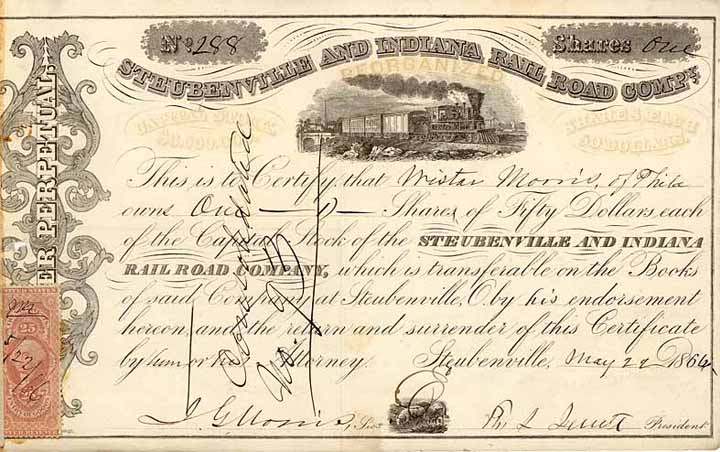 No. 288
Shares One
STEUBENVILLE AND INDIANA RAIL ROAD COMPY.
REORGANIZED
CAPITAL STOCK
SHARES EACH
50 DOLLARS.
ER PERPETUAL
This is to Certify, that Wistar Morris, of Phila
owns One Shares of Fifty Dollars each
of the Capital Stock of the STEUBENVILLE AND INDIANA
RAIL ROAD COMPANY, which is transferable on the Books
of said Company, at Steubenville, O. by his endorsement
hereon, and the return and surrender of this Certificate
by him or his Attorney. Steubenville, May 28 1866
Consolidated
25
J. G. Morris, Secy.
President